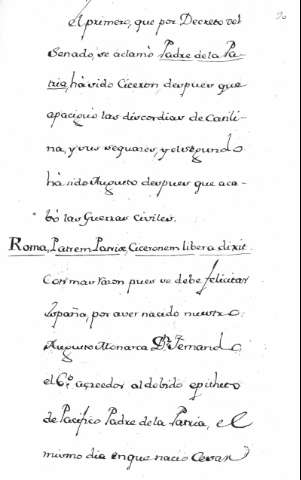 el primero, que por Decreto del
Senado, se aclamò Padre de la Pa-
tria, ha sido Ciceron despues que
apaciguò las discordias de Catili-
na, y sus seguaces, y el segundo
ha sido Augusto despues que aca-
bò las Guerras Civiles.
Roma, Patrem Patriæ, Ciceronem libera dixit.
Con mas razon pues se debe felicitar
España, por aver nacido nuestro
Augusto Monarca Dn. Fernando
el 6º. acreedor al debido epitheto
de Pacifico Padre de la Patria, el
mismo dia en que naciò Cesar